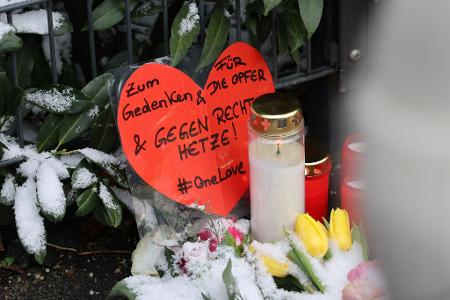 Zum FÜR
Gedenken & DIE OPFER
& GEGEN RECHT
HETZE!
#OneLove